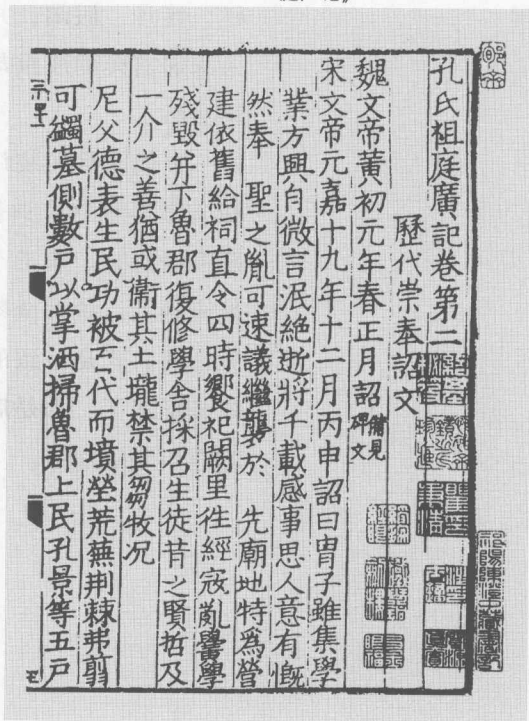 孔氏祖庭廣記卷第二
歷代崇奉詔文
魏文帝黃初元年春正月詔備見碑文
宋文帝元嘉十九年十二月丙申詔曰胄子雖集學
業方興自微言泯絕逝將千載感事思人意有慨
然奉 聖之胤可速議繼襲於 先廟地特為營
建依舊給祠直令四時饗祀闕里往經寇亂黌學
殘毀并下魯郡復修學舍採召生徒昔之賢哲及
一介之善猶或衛其土壠禁其芻牧況
尼父德表生民功被百代而墳塋荒蕪荊棘弗翦
可蠲墓側數戶以掌洒掃魯郡上民孔景等五戶